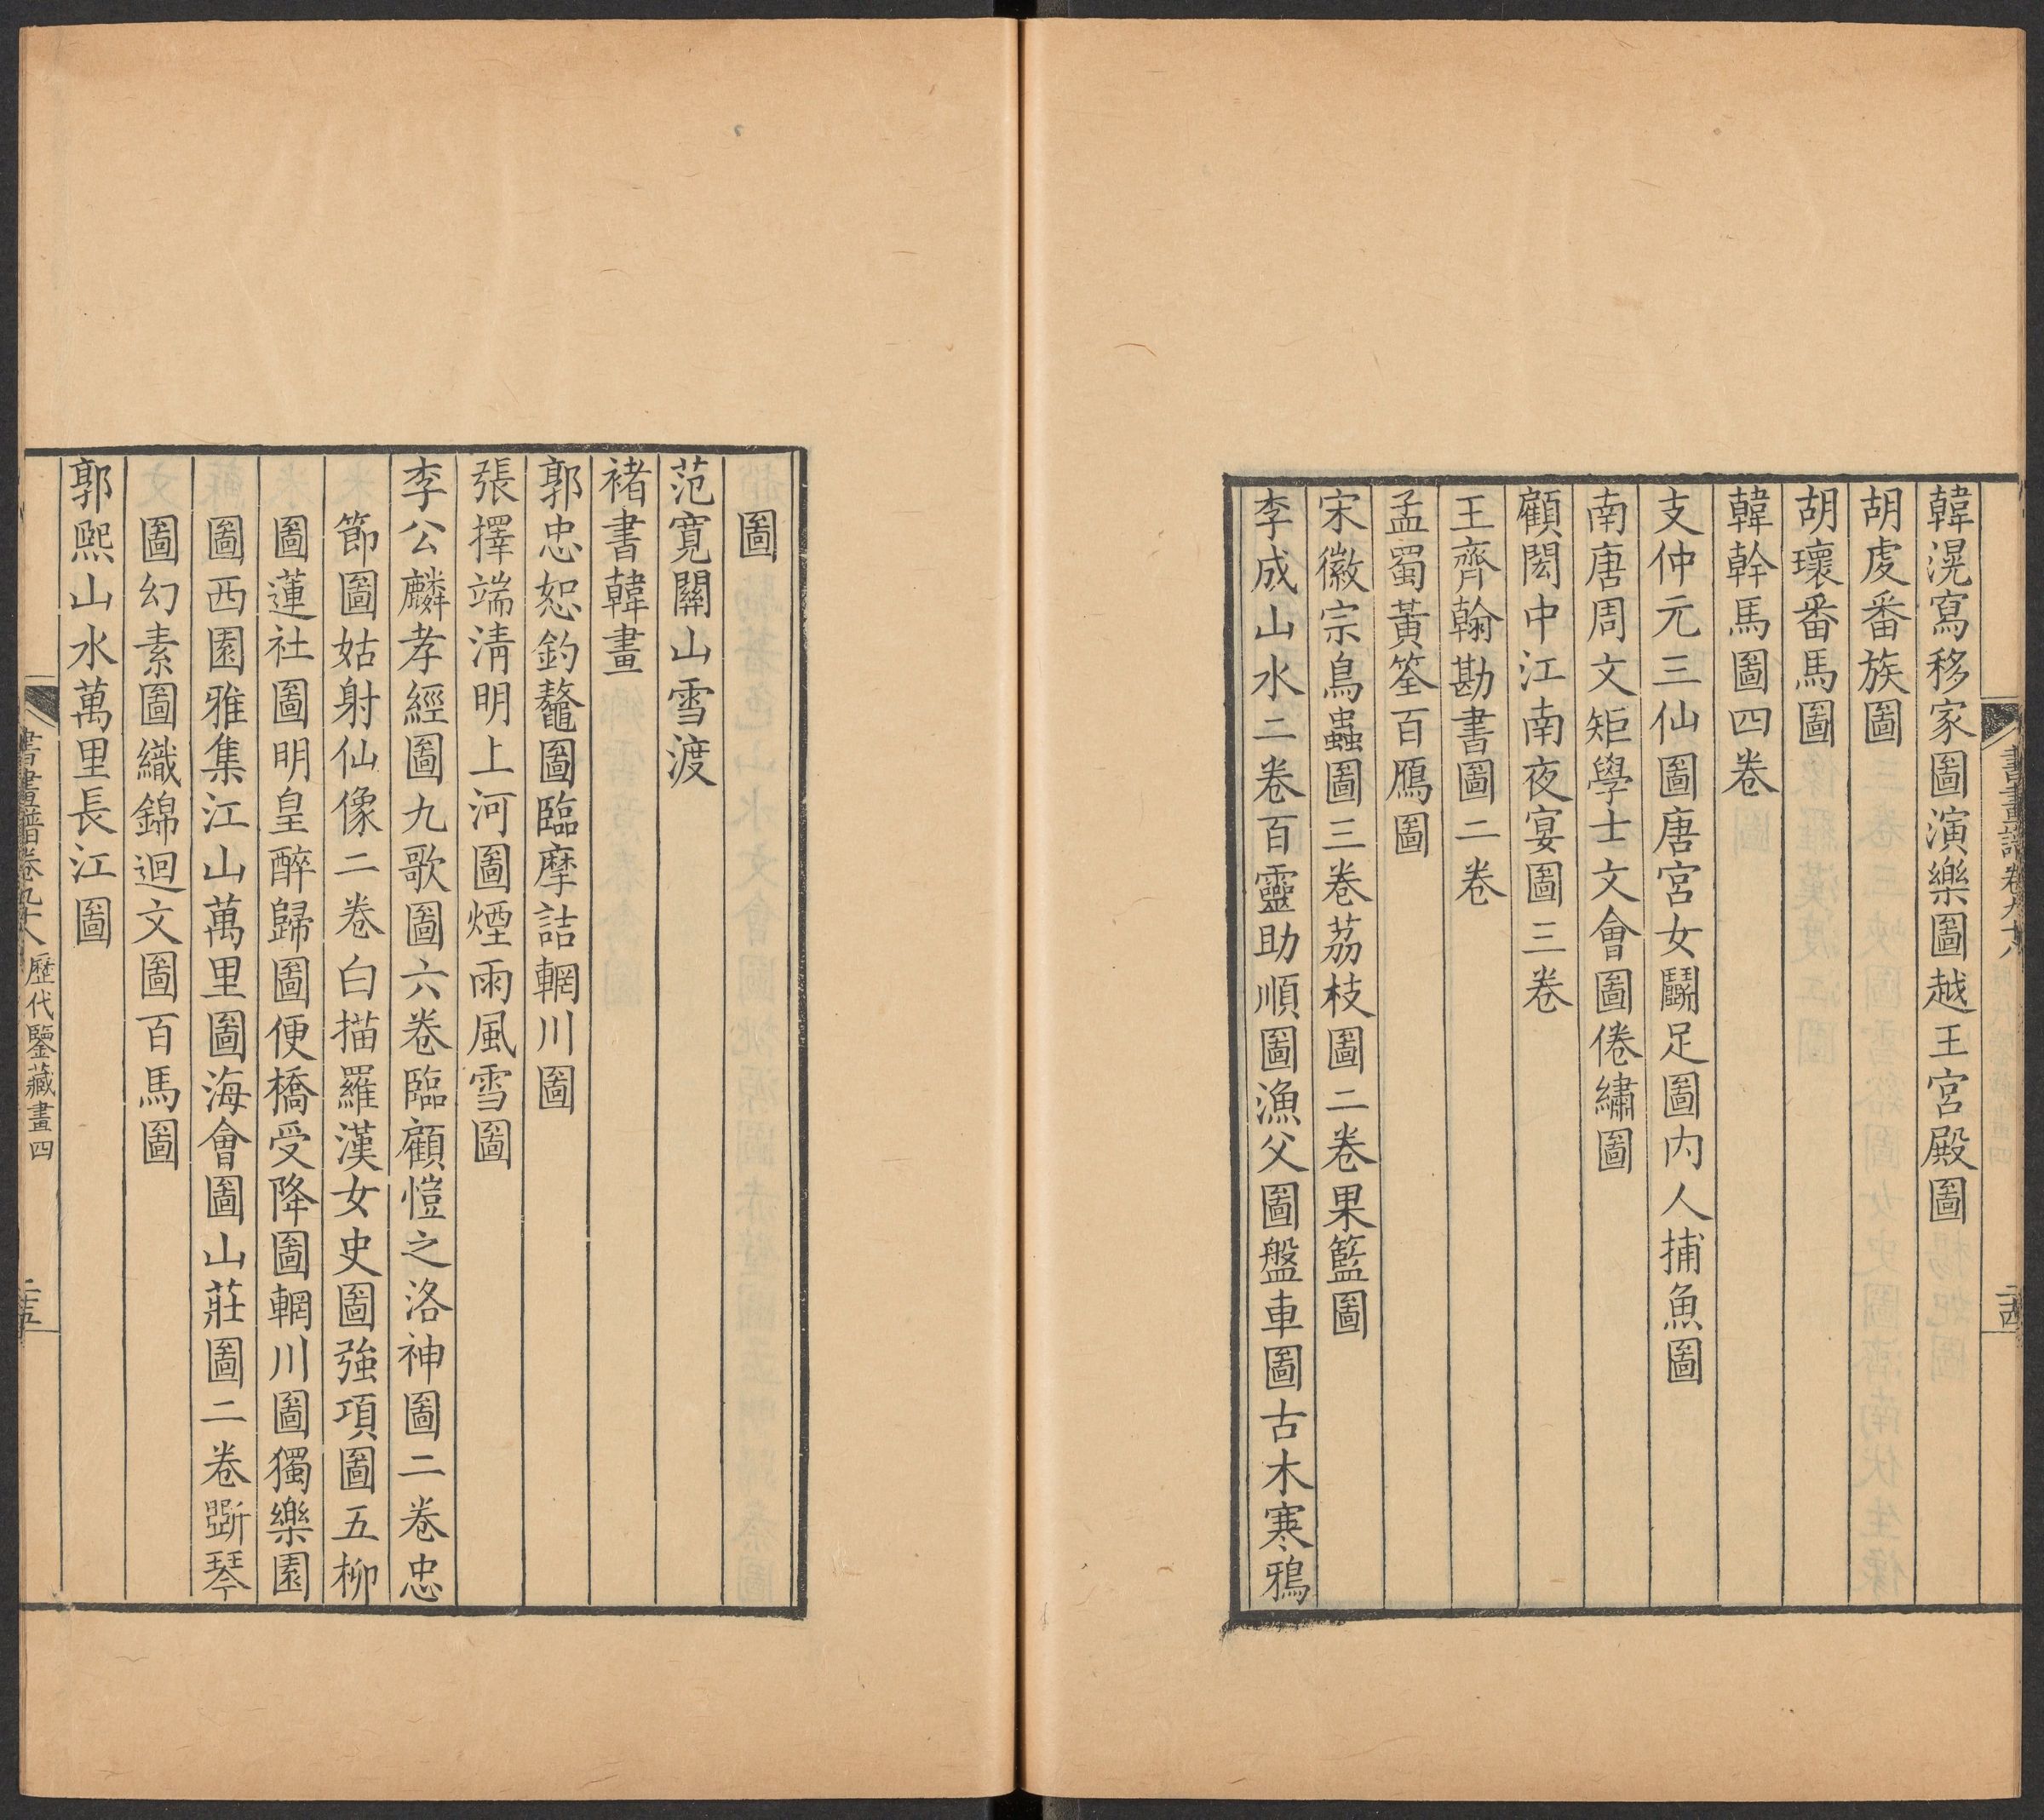 韓滉寫移家圖演樂圖越王宮殿圖
胡虔番族圖
胡瓌番馬圖
韓幹馬圖四卷
支仲元三仙圖唐宮女鬭足圖內人捕魚圖
南唐周文矩學士文會圖倦繡圖
顧閎中江南夜宴圖三卷
王齊翰勘書圖二卷
孟蜀黃筌百鴈圖
宋徽宗鳥蟲圖三卷荔枝圖二卷果籃圖
李成山水二卷百靈助順圖漁父圖盤車圖古木寒鴉
圖
范寬關山雪渡
褚書韓畫
郭忠恕釣鼇圖臨摩詰輞川圖
張擇端清明上河圖煙雨風雪圖
李公麟孝經圖九歌圖六卷臨顧愷之洛神圖二卷忠
節圖姑射仙像二卷白描羅漢女史圖強項圖五柳
圖蓮社圖明皇醉歸圖便橋受降圖輞川圖獨樂園
圖西園雅集江山萬里圖海會圖山莊圖二卷斲琴
圖幻素圖織錦迴文圖百馬圖
郭熙山水萬里長江圖
書畫譜卷九十八 歷代鑒藏畫四 二十五